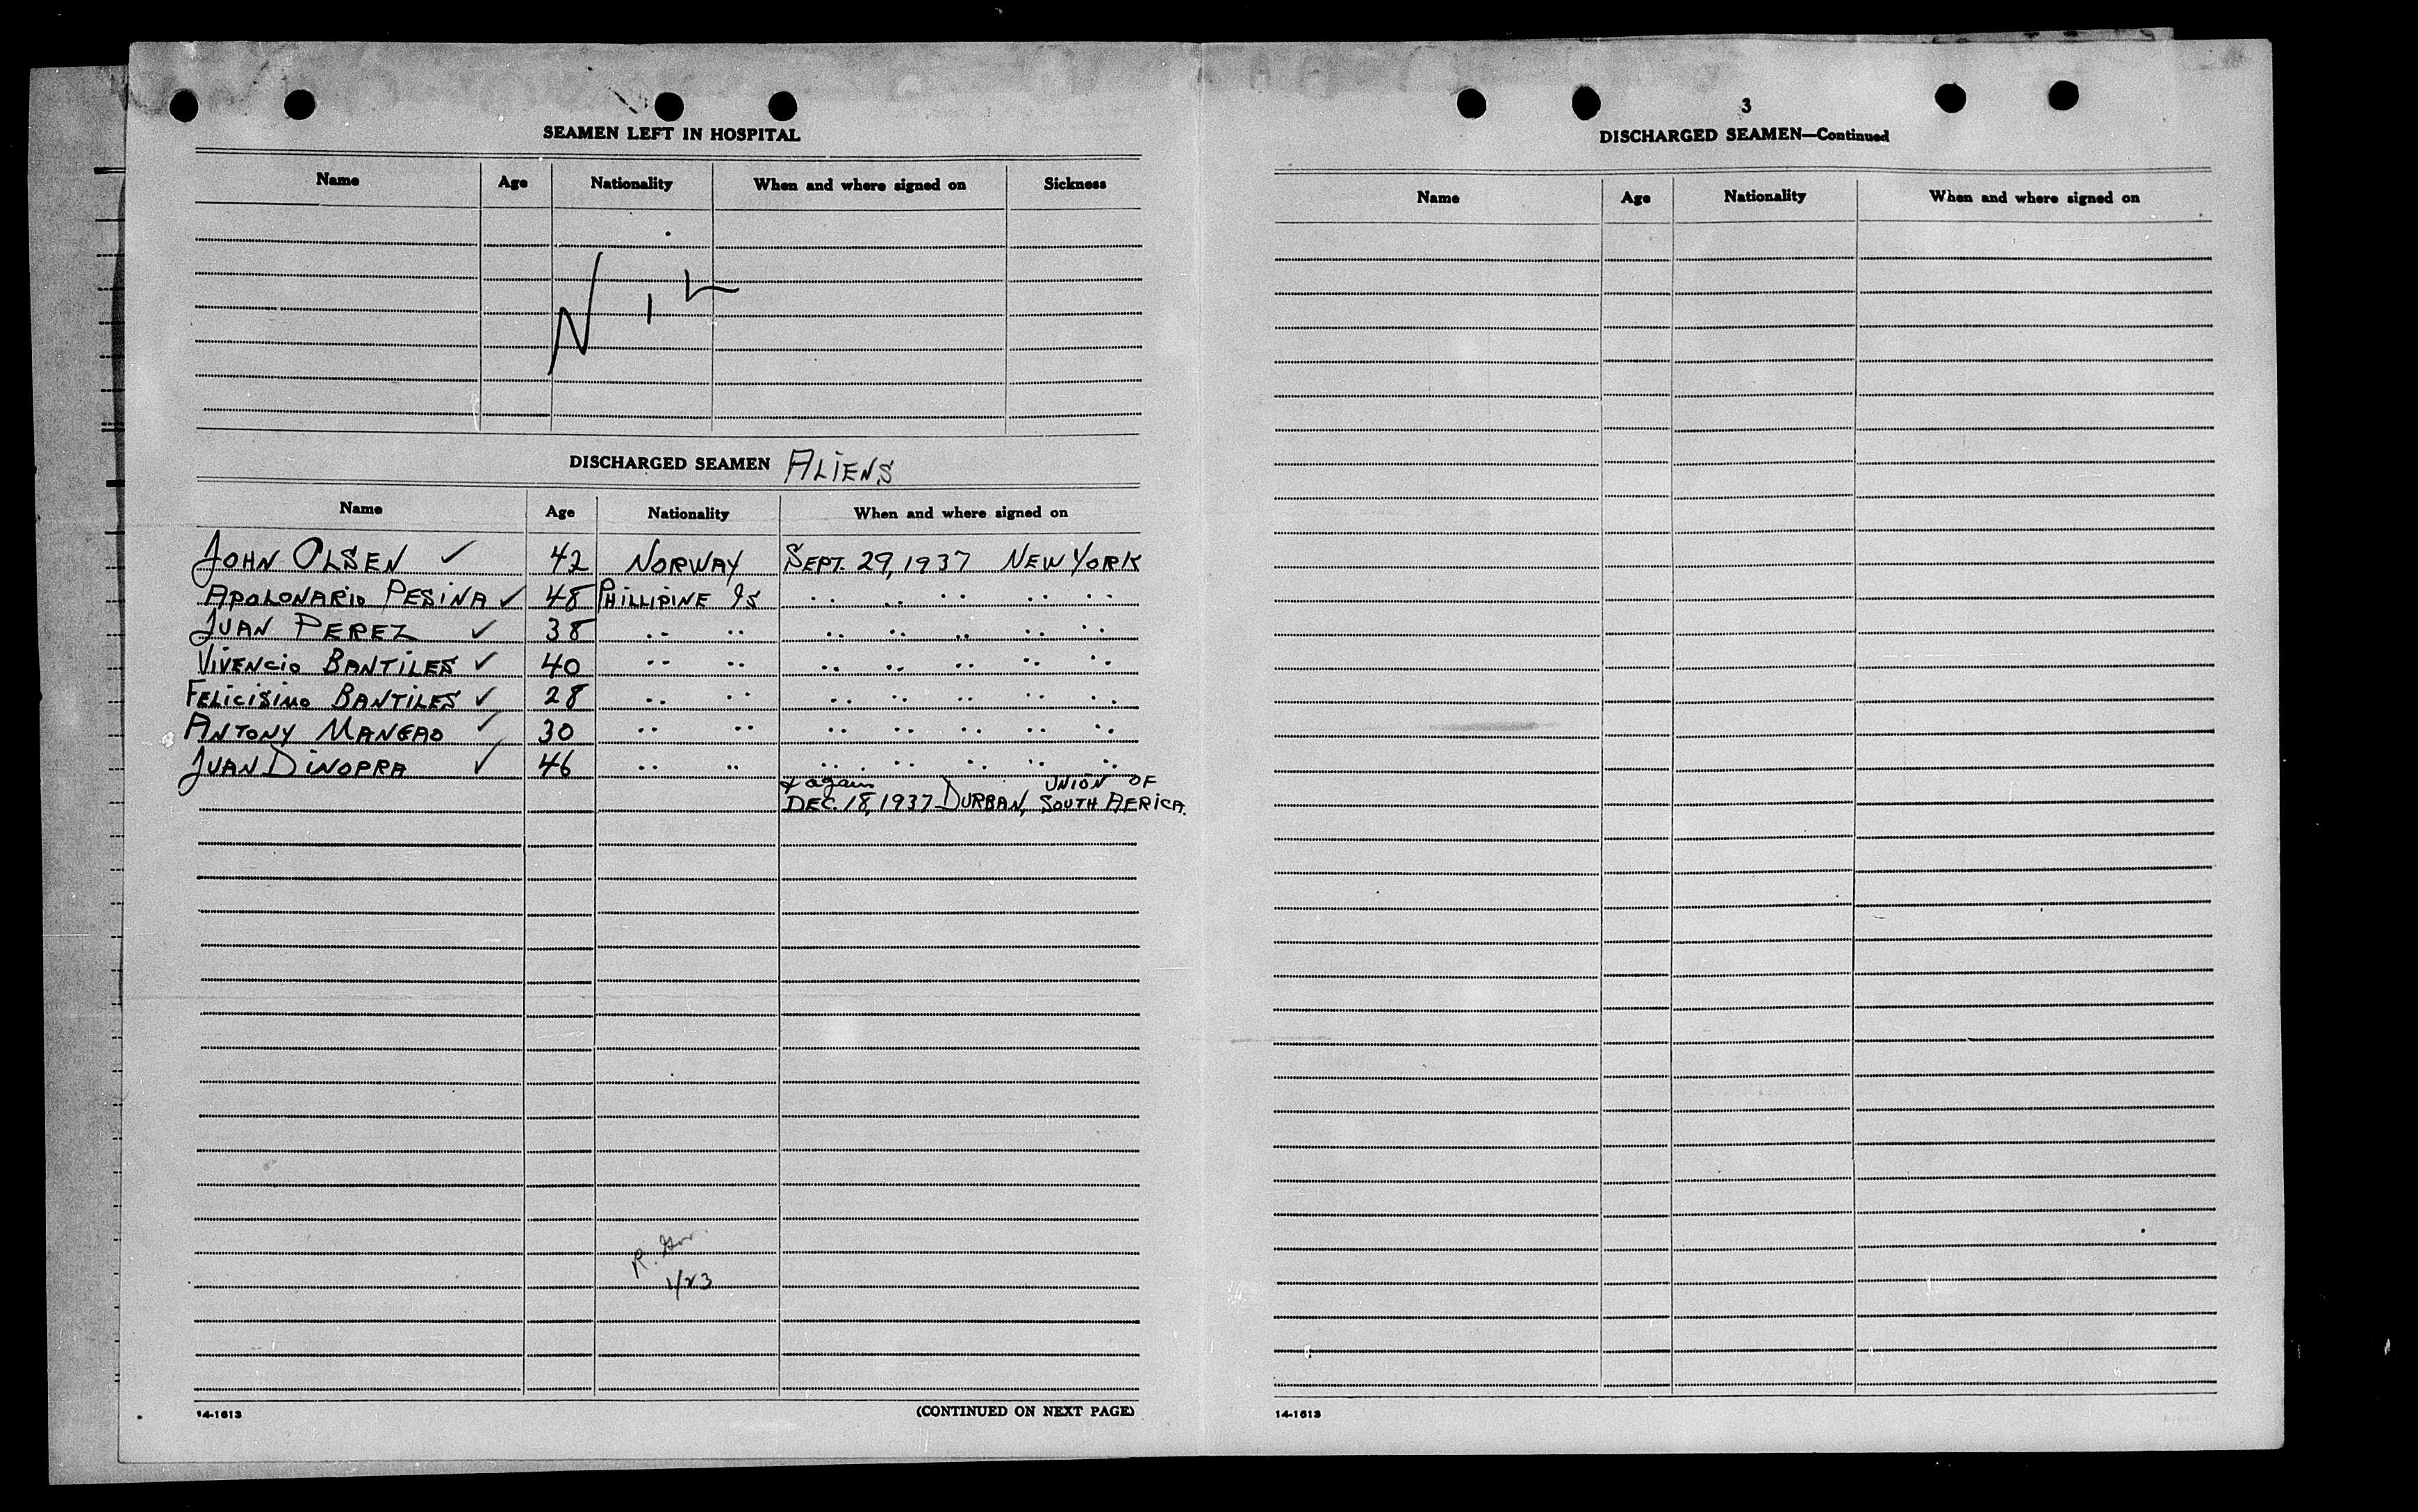 SEAMEN LEFT IN HOSPITAL
Name Age Nationality When and where signed on Sickness
NIL
DISCHARGED SEAMEN ALIENS
Name Age Nationality When and where signed on
JOHN OLSEN ✓ 42 NORWAY SEPT. 29, 1937 NEW YORK
APOLONARIO PESINA ✓ 48 PHILLIPINE IS " " " " "
JUAN PEREZ ✓ 38 " " " " " " "
VIVENCIO BANTILES ✓ 40 " " " " " " "
FELICISIMO BANTILES ✓ 28 " " " " " " "
ANTONY MANGAO ✓ 30 " " " " " " "
JUAN DINOPRA ✓ 46 " " " " " " "
& again UNION OF
DEC. 18, 1937 DURBAN, SOUTH AFRICA.
R.
1/23
14-1613
(CONTINUED ON NEXT PAGE)
3
DISCHARGED SEAMEN—Continued
Name Age Nationality When and where signed on
14-1613